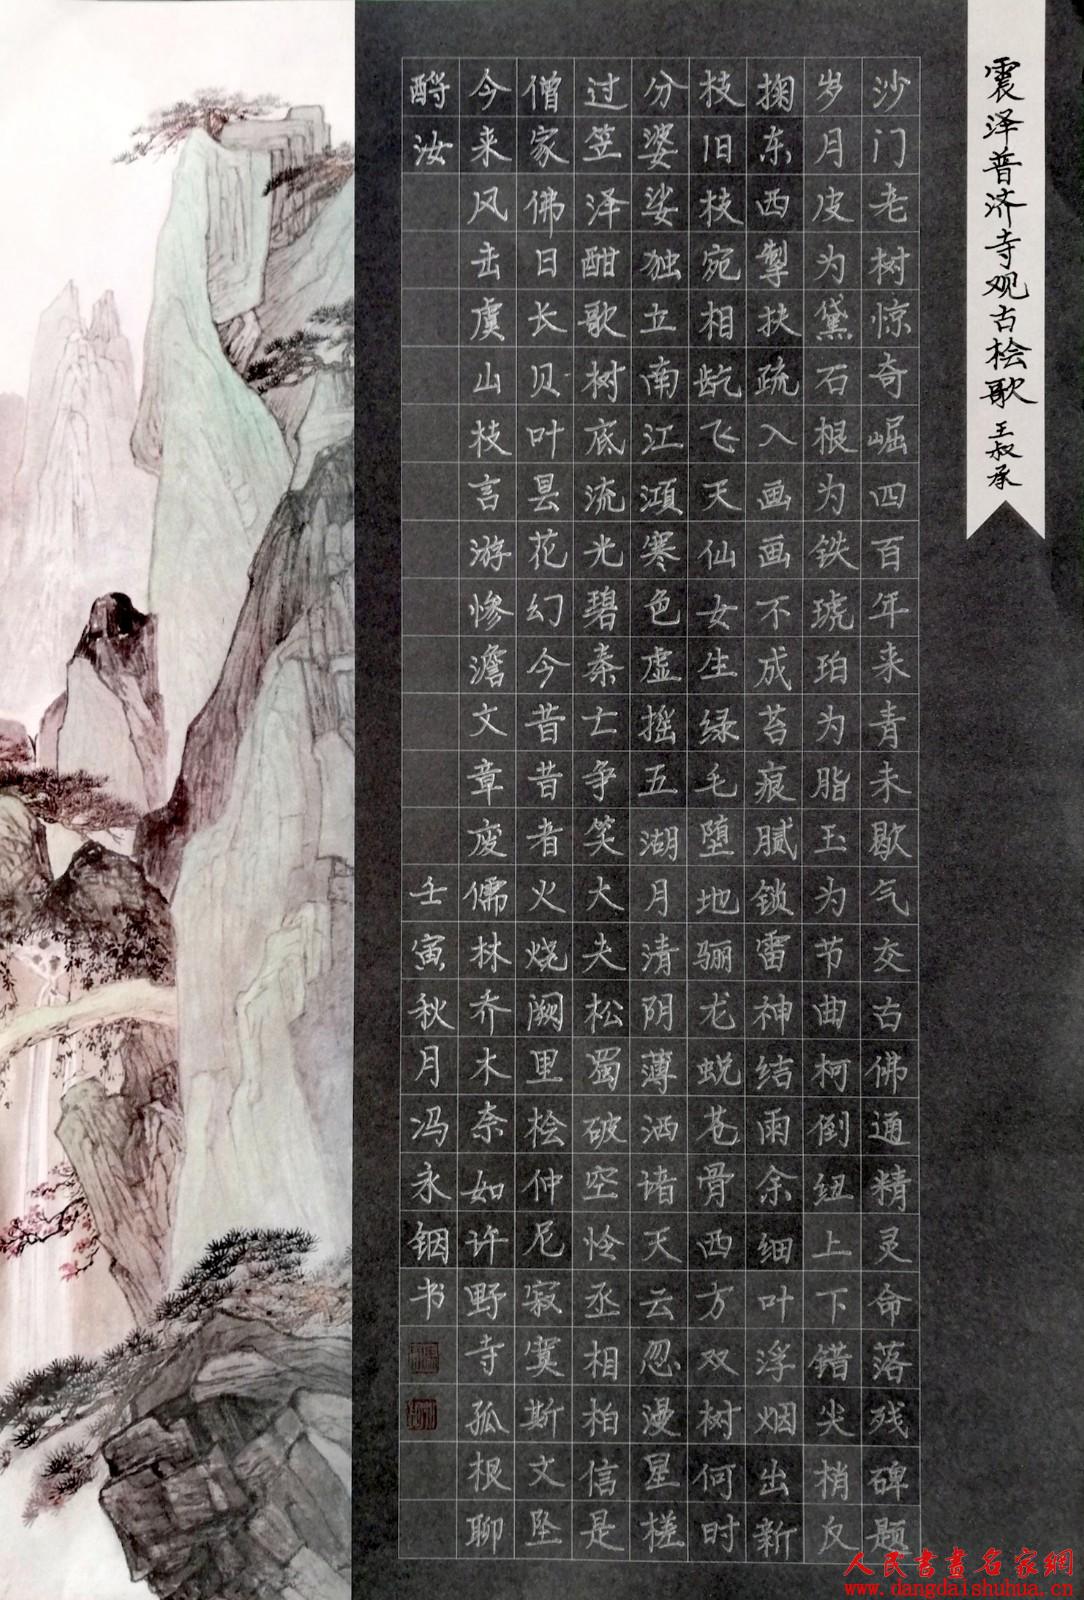 震泽普济寺观古桧歌 王叔承
沙门老树惊奇崛四百年来青未歇气交古佛通精灵命落残碑题
岁月皮为黛石根为铁琥珀为脂玉为节曲柯倒纽上下错尖梢反
掬东西掣扶疏入画画不成苔痕腻锁雷神结雨余细叶浮烟出新
枝旧枝宛相龁飞天仙女生绿毛堕地骊龙蜕苍骨西方双树何时
分婆娑独立南江澒寒色虚摇五湖月清阴薄洒诸天云忽漫星槎
过笠泽酣歌树底流光碧秦亡争笑大夫松蜀破空怜丞相柏信是
僧家佛日长贝叶昙花幻今昔昔者火烧阙里桧仲尼寂寞斯文坠
今来风击虞山枝言游惨澹文章废儒林乔木奈如许野寺孤根聊
酹汝
壬寅秋月冯永铟书
人民书画名家網
www.dangdaishuhua.cn